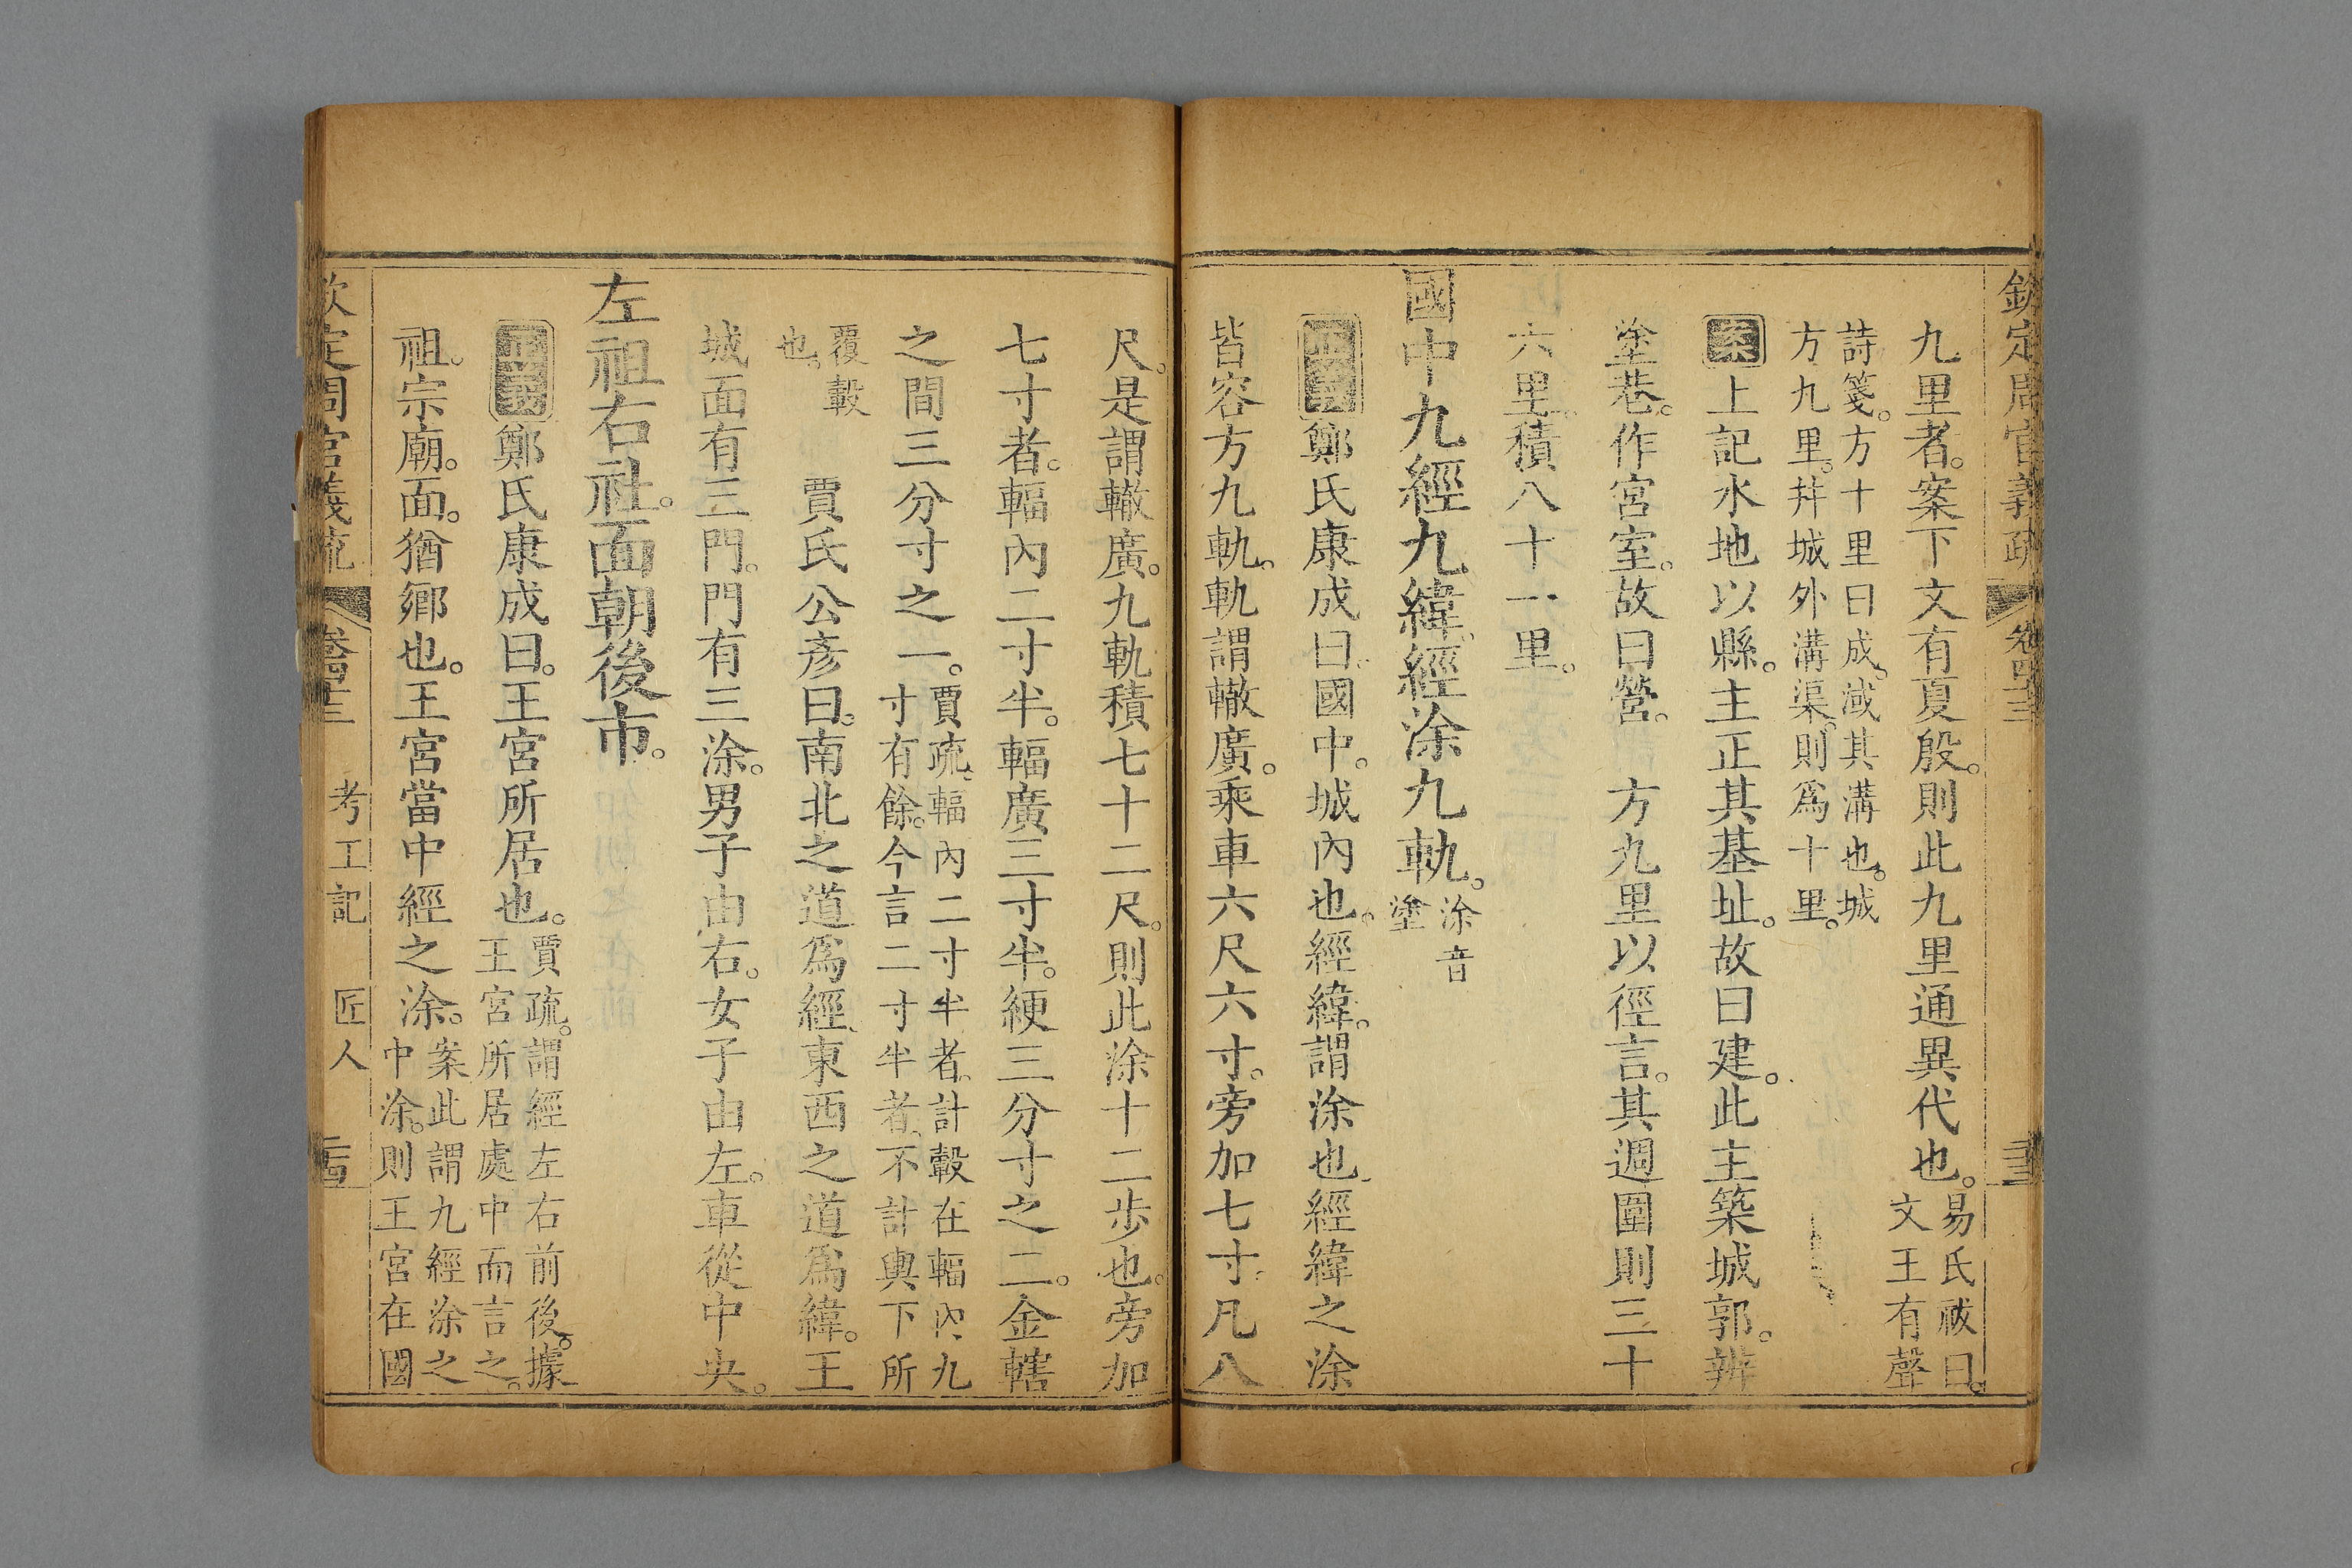 欽定周官義疏 卷四十三
九里者。案下文有夏殷。則此九里通異代也。易氏祓曰。文王有聲
詩箋。方十里曰成。淢其溝也。城方九里。幷城外溝渠。則爲十里。
案上記水地以縣。主正其基址。故曰建。此主築城郭。辨
塗巷。作宮室。故曰營。 方九里以徑言。其週圍則三十
六里。積八十一里。
國中九經九緯、經涂九軌。涂音塗
正義鄭氏康成曰。國中。城內也。經緯。謂涂也、經緯之涂
皆容方九軌。軌謂轍廣。乘車六尺六寸。旁加七寸、凡八
尺。是謂轍廣。九軌積七十二尺。則此涂十二步也。旁加
七寸者。輻內二寸半。輻廣三寸半。綆三分寸之二。金轄
之間三分寸之一。賈疏、輻內二寸半者、計轂在輻內、九寸有餘。今言二寸半者、不計輿下所
覆轂也。 賈氏公彥曰。南北之道爲經、東西之道爲緯。王
城面有三門。門有三涂。男子由右。女子由左。車從中央。
左祖右社。面朝後市。
正義鄭氏康成曰。王宮所居也。賈疏。謂經左右前後。據王宮所居處中而言之。
祖。宗廟。面。猶鄉也。王宮當中經之涂。案此謂九經涂之中涂。則王宮在國
欽定周官義疏 卷四十三 考工記 匠人